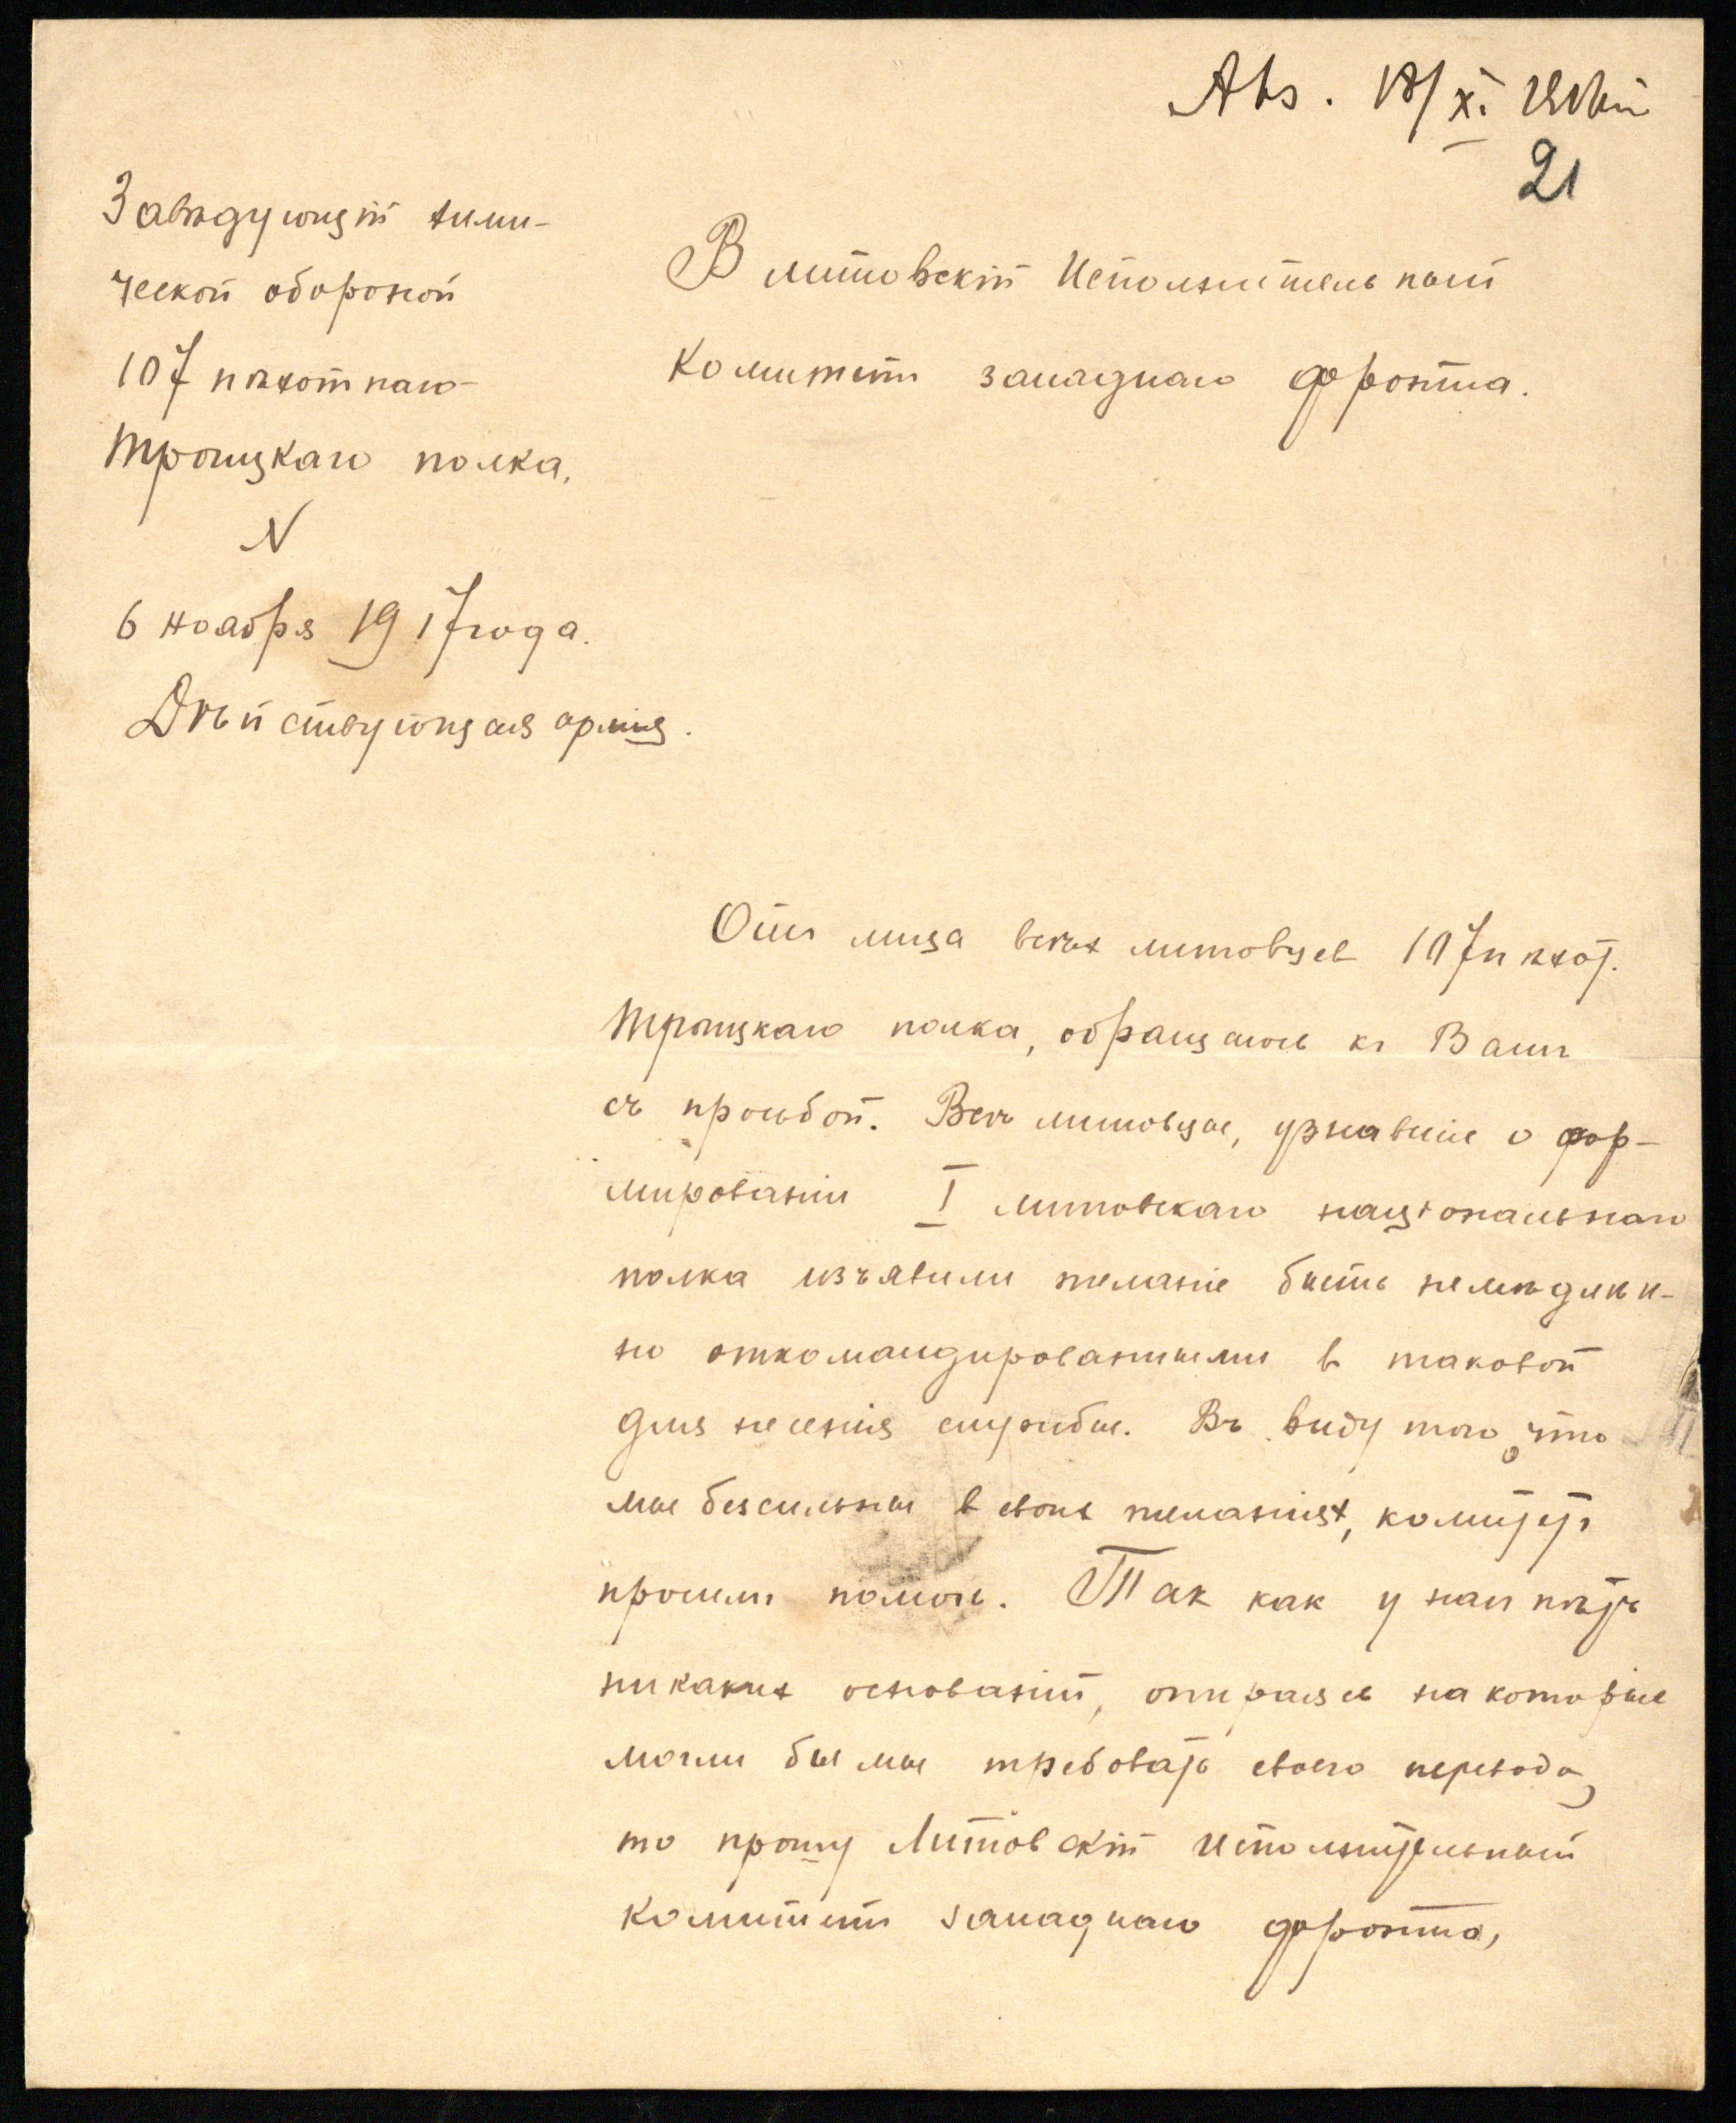 Ats. 18/XI
21
Завѣдующій хими-
ческой обороной
107 пѣхотнаго
Троицкаго полка.
N
6 ноября 1917 года.
Дѣйствующая армія.
В литовскій Исполнительный
Комитетъ западнаго фронта.
Отъ лица всѣх литовцев 107 пѣхот.
Троицкаго полка, обращаюсь къ Вамъ
съ просьбой. Всѣ литовцы, узнавшіе о фор-
мированіи I литовскаго національнаго
полка изъявили желаніе быть немѣдлѣн-
но откомандированными в таковой
для несенія службы. Въ виду того, что
мы безсильны в своих желаніях, комитетъ
просимъ помочь. Так как у насъ нѣтъ
никаких основаній, опираясь на которые
могли бы мы требовать своего перевода,
то прошу Литовскій исполнительный
комитетъ западнаго фронта,